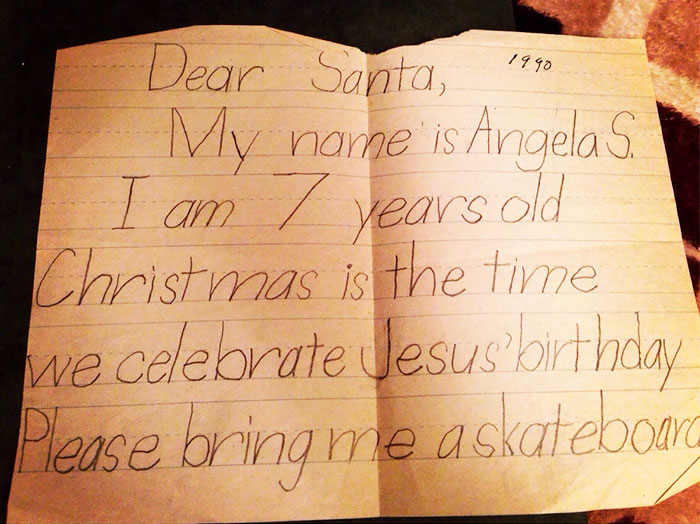 Dear Santa, 1990
My name is Angela S.
I am 7 years old
Christmas is the time
we celebrate Jesus' birthday
Please bring me a skateboard